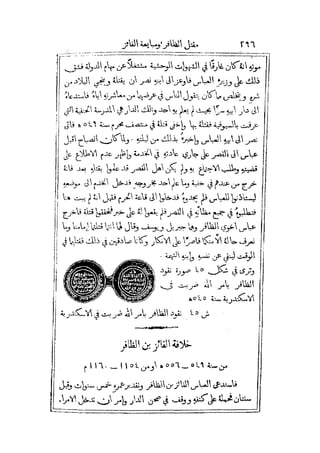 ٢٩٦ مقتل الظافر ومبايعة الفائز
موته انه كان غارقًا في الشهوات الوحشية مشتغلًا عن مهام الدولة فشق
ذلك على وزيره العباس فاوعز الى ابنه نصر ان يقتله وينجي البلاد من
شره ويتخلص مما كان يتقول الناس في عرضهما من معاشرته اياه فاستدعاه
الى دار ابيه سرًّا بحيث لم يعلم به احد وتلك الدار هي المدرسة الحنفية التي
عرفت بالسيوفية فقتله بها واخفى قتله في منتصف محرم سنة ٥٤٩ه فاتى
نصر الى ابيه العباس واخبره بذلك من ليلته. ولما كان الصباح اقبل
عباس الى القصر على جاري عادته في الخدمة واظهر عدم الاطلاع على
قضيته وطلب الاجتماع به ولم يكن اهل القصر قد علموا بقتله بعد فانه
خرج من عندهم في خفية وما علم احد بخروجه فدخل الخدم الى موضعه
ليستأذنوا للعباس فلم يجدوه فدخلوا الى قاعة الحرم فقيل له لم يبت هنا
فتطلبوه في جميع مظانه في القصر فلم يقعوا له على خبر فاخرج
عباس اخوي الظافر وهما جبريل ويوسف وقال لهما انتما قتلتما إمامنا وما
نعرف حاله الا منكما فاصرا على الانكار وكانا صادقين في ذلك فقتلهما في
الوقت لينفي عن نفسه وابنه التهمة
وترى في شكل ٤٥ صورة نقود
الظافر بامر الله ضربت في
الاسكندرية سنة ٥٤٥ه
ش ٤٥ نقود الظافر بامر الله ضربت في الاسكندرية
خلافة الفائز بن الظافر
من سنة ٥٤٩ — ٥٥٦ه او من ١١٥٤ — ١١٦٠م
فاستدعى العباس الفائز بن الظافر وتقدير عمره خمس سنوات وقيل
سنتان فحمله على كتفه ووقف في صحن الدار وامر ان تدخل الامراء.